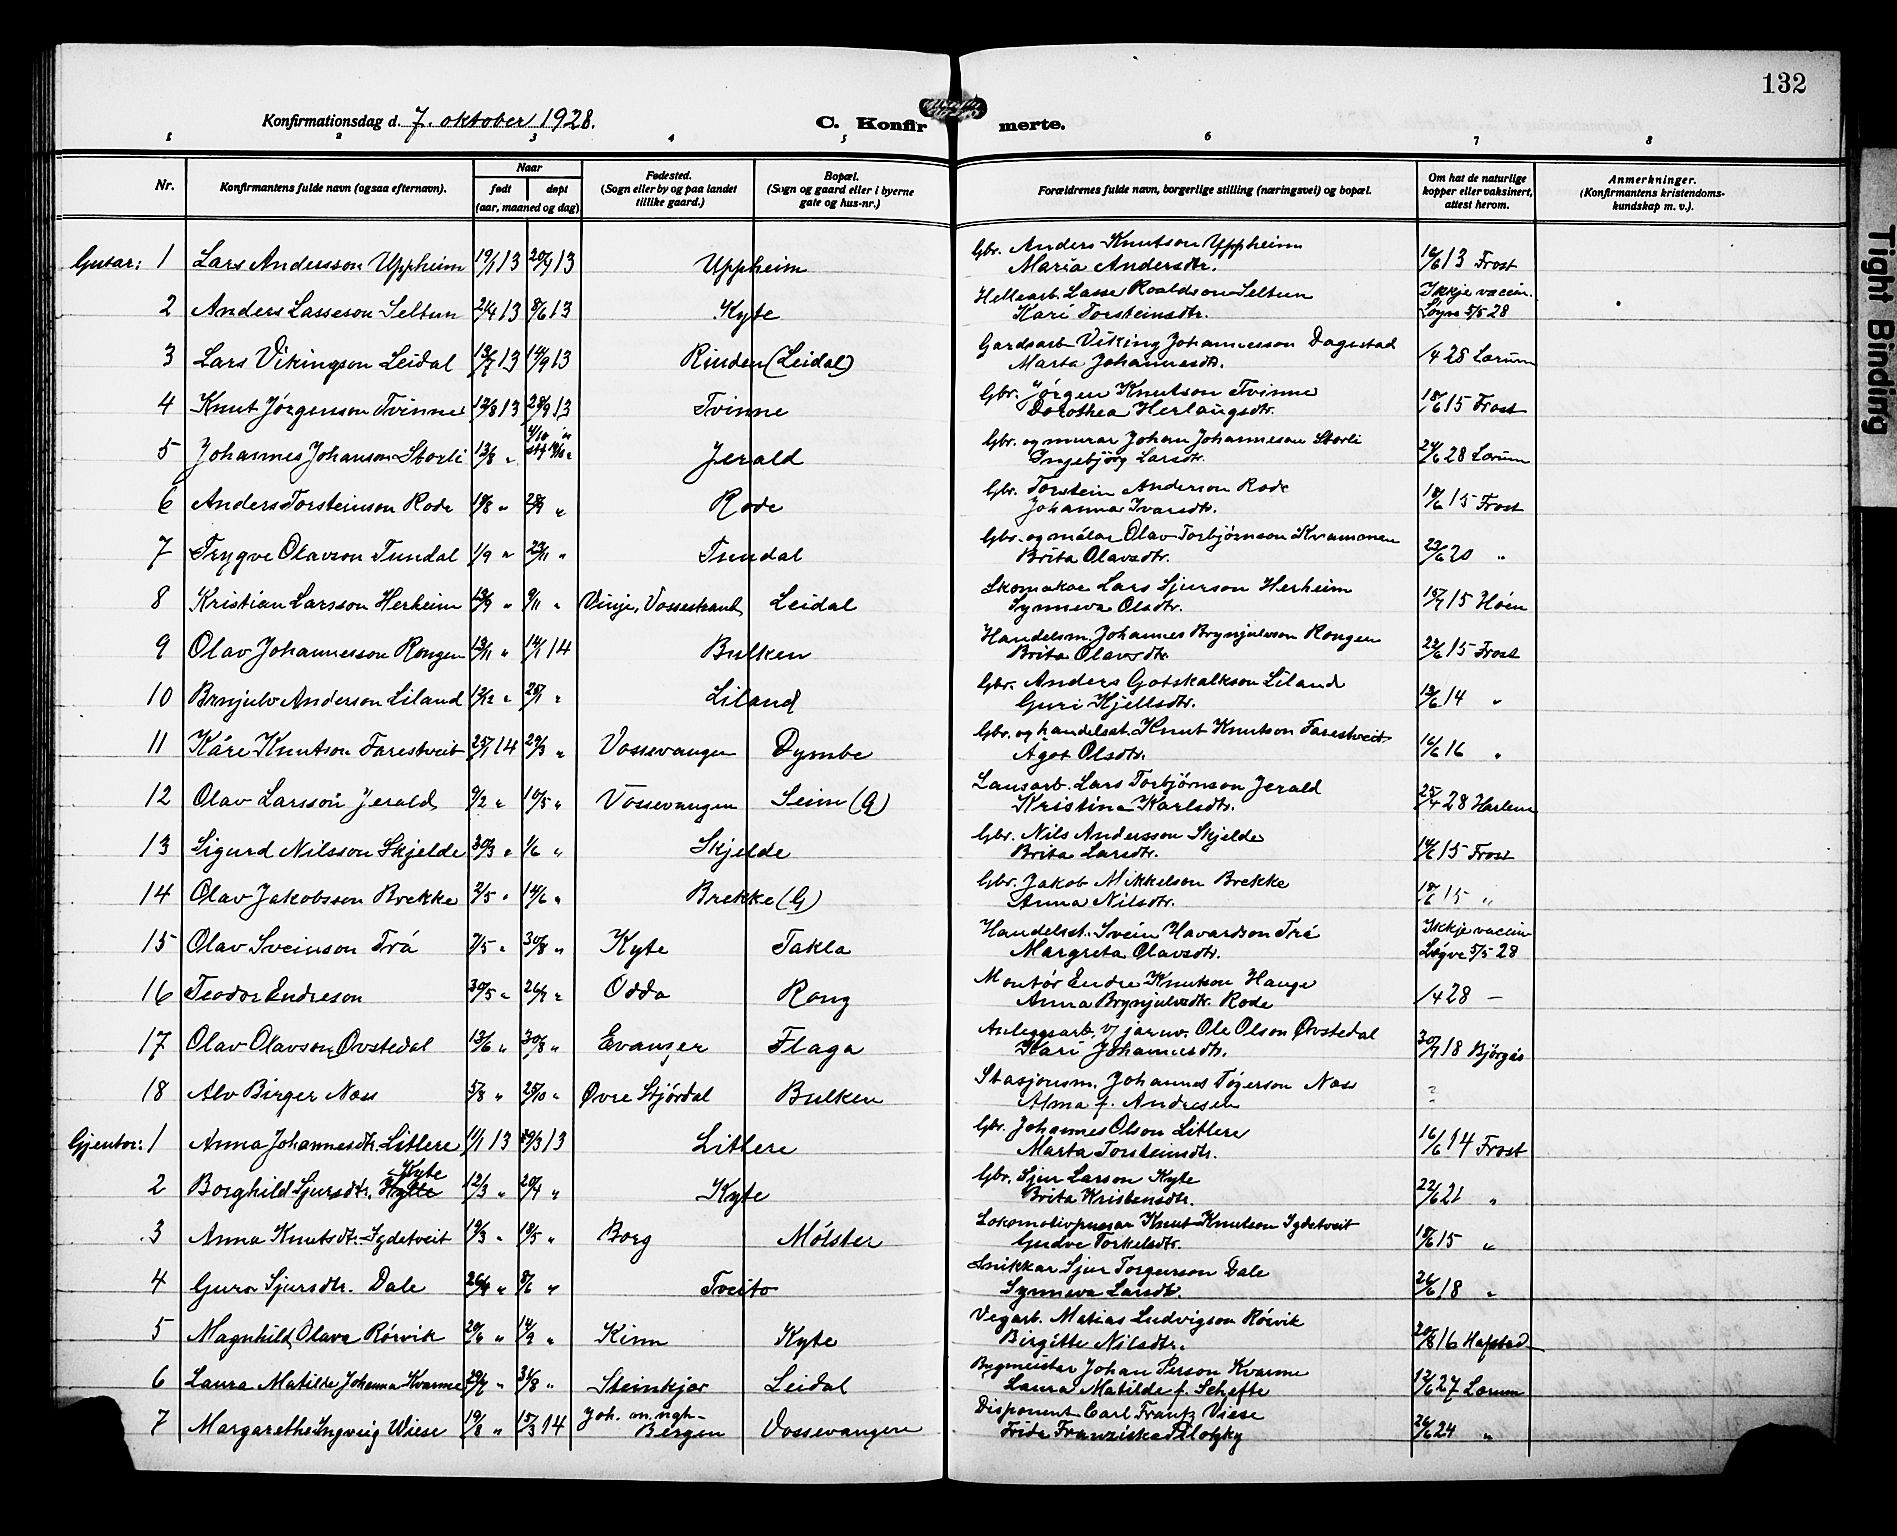 132
Konfirmationsdag d. 7. oktober 1928.
C. Konfirmerte.
1 2 3 4 5 6 7 8
Nr.
Konfirmantens fulde navn (ogsaa efternavn).
Naar
født
døpt
(aar, maaned og dag)
Fødested.
(Sogn eller by og paa landet
tillike gaard.)
Bopæl.
(Sogn og gaard eller i byerne
gate og hus-nr.)
Forældrenes fulde navn, borgerlige stilling (næringsvei) og bopæl.
Om hat de naturlige
kopper eller vaksinert,
attest herom.
Anmerkninger.
(Konfirmantens kristendoms-
kundskap m. v.).
Gutar: 1 Lars Andersson Uppheim 19/1 13 20/4 13 Uppheim Gbr. Anders Knutson Uppheim
Maria Andersdtr. 13 Frost
2 Anders Lasseson Seltun 21/4 13 8/6 13 Kyte Hellearb. Lasse Roaldson Seltun
Kari Torsteinsdtr. Ikkje vaccin.
Løgve 5/5 28
3 Lars Vikingson Leidal 13/7 13 14/9 13 Rinden (Leidal) Gardsarb. Viking Johannesson Dagestad
Marta Johannesdtr. 1/4 28 Lorum
4 Knut Jørgenson Tvinne 12/8 13 28/9 13 Tvinne Gbr. Jørgen Knutson Tvinne
Dorothea Herlaugsdtr. 18/6 15 Frost
5 Johannes Johanson Storli 13/8 „ Jerald Gbr. og murar Johan Johanneson Storli
Ingebjørg Larsdtr. 28 Lorum
6 Anders Torsteinson Rode 19/8 „ 28/9 „ Rode Gbr. Torstein Anderson Rode
Johanna Ivarsdtr. 18/6 15 Frost
7 Trygve Olavson Tundal 1/9 „ 23/11 „ Tundal Gbr. og målar Olav Torbjørnson Kvammen
Brita Olavsdtr. 22/6 20 „
8 Kristian Larsson Herheim „ 9/11 „ Vinje, Vossestrand Leidal Skomakar Lars Sjurson Herheim
Synneva Olsdtr. 15 Høen
9 Olav Johannesson Rongen 13/11 „ 14/1 14 Bulken Handelsm. Johannes Brynjulvson Rongen
Brita Olavsdtr. 22/6 15 Frost
10 Brnjulv Anderson Liland 12/12 „ 25/1 „ Liland Gbr. Anders Gotskalkson Liland
Guri Kjellsdtr. 14 „
11 Kåre Knutson Farestveit 25/1 14 29/3 „ Vossevangen Dymbe Gbr. og handelsst. Knut Knutson Farestveit
Ågot Olsdtr. 16/6 16 „
12 Olav Larsson Jerald 9/2 „ 10/5 „ Vossevangen Seim (G) Lausarb. Lars Torbjørnson Jerald
Kristina Karlsdtr. 25/4 28 Harlem
13 Sigurd Nilsson Skjelde 30/3 „ 1/6 „ Skjelde Gbr. Nils Andersson Skjelde
Brita Larsdtr. 14/6 15 Frost
14 Olav Jakobsson Brekke 2/5 „ 14/6 „ Brekke (G) Gbr. Jakob Mikkelson Brekke
Anna Nilsdtr. 15 „
15 Olav Sveinson Trå 7/5 „ 30/8 „ Kyte Takla Handelsst. Svein Havardson Trå
Margreta Olavsdtr. Ikkje vaccin
Løgve 5/5 28
16 Teodor Endreson 30/5 „ „ Odda Rong Montør Endre Knutson Hauge
Anna Brynjulvsdtr. Rode 1/4 28 –
17 Olav Olavson Øvstedal 13/6 „ 30/8 „ Evanger Flaga Anleggsarb. v/ jarnv. Ole Olson Øvstedal
Kari Johannesdtr. 18
18 Alv Birger Nass 5/8 „ 25/10 „ Øvre Stjørdal Bulken Stasjonsm. Johannes Tøgerson Nass
Alma f. Andresen ?
Gjentor: 1 Anna Johannesdtr. Litlere 11/1 13 29/3 13 Litlere Gbr. Johannes Olson Litlere
Marta Torsteinsdtr. 16/6 14 Frost
Kyte
2 Borghild Sjursdtr. 12/3 „ 20/4 „ Kyte Gbr. Sjur Larson Kyte
Brita Kristensdtr. 22/6 21 „
3 Anna Knutsdtr. Sydetveit 19/3 „ 19/5 „ Borg Mølster Lokomotivpussar Knut Knutson Sydetveit
Gudve Torkelsdtr. 18/6 15 „
4 Guro Sjursdtr. Dale 26/4 „ 8/6 „ Tveito Snikkar Sjur Torgerson Dale
Synneva Larsdtr. 26/6 18 „
5 Magnhild Olava Rørvik 20/6 „ 14/9 „ Kinn Kyte Vegarb. Matias Ludvigson Rørvik
Birgitte Nilsdtr. 20/8 16 Hafstad
6 Laura Matilde Johanna Kvarme 29/7 „ 31/8 „ Steinkjær Leidal Bygmeister Johan Person Kvarme
Laura Matilde f. Schefte 13/6 27 Lorum
7 Margarethe Ingveig Wiese 19/8 „ 15/3 14 Joh. m.ngh.
Bergen Vossevangen Disponent Carl Frantz Viese
Frida Franziska 26/6 24 „
Tight Binding